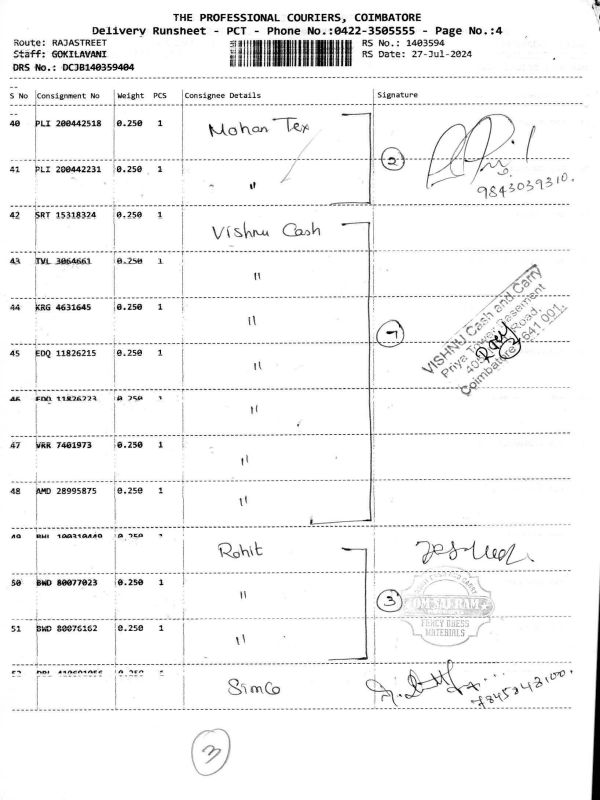 THE PROFESSIONAL COURIERS, COIMBATORE
Delivery Runsheet - PCT - Phone No.:0422-3505555 - Page No.:4
Route: RAJASTREET RS No.: 1403594
Staff: GOKILAVANI RS Date: 27-Jul-2024
DRS No.: DCJB140359404
S No Consignment No Weight PCS Consignee Details Signature
40 PLI 200442518 0.250 1 Mohan Tex
2
9843039310.
41 PLI 200442231 0.250 1 "
42 SRT 15318324 0.250 1 Vishnu Cash
43 TVL 3064661 0.250 1 "
44 KRG 4631645 0.250 1 "
7
VISHNU Cash and Carry
Priya Tower Basement
Road,
Coimbatore - 641 001.
45 EDQ 11826215 0.250 1 "
46 EDQ 11826223 0.250 1 "
47 VRR 7401973 0.250 1 "
48 AMD 28995875 0.250 1 "
49 Rohit
50 BWD 80077023 0.250 1 "
3
OM SAI RAM
FANCY DRESS
MATERIALS
51 BWD 80076162 0.250 1 "
52 Simco
3